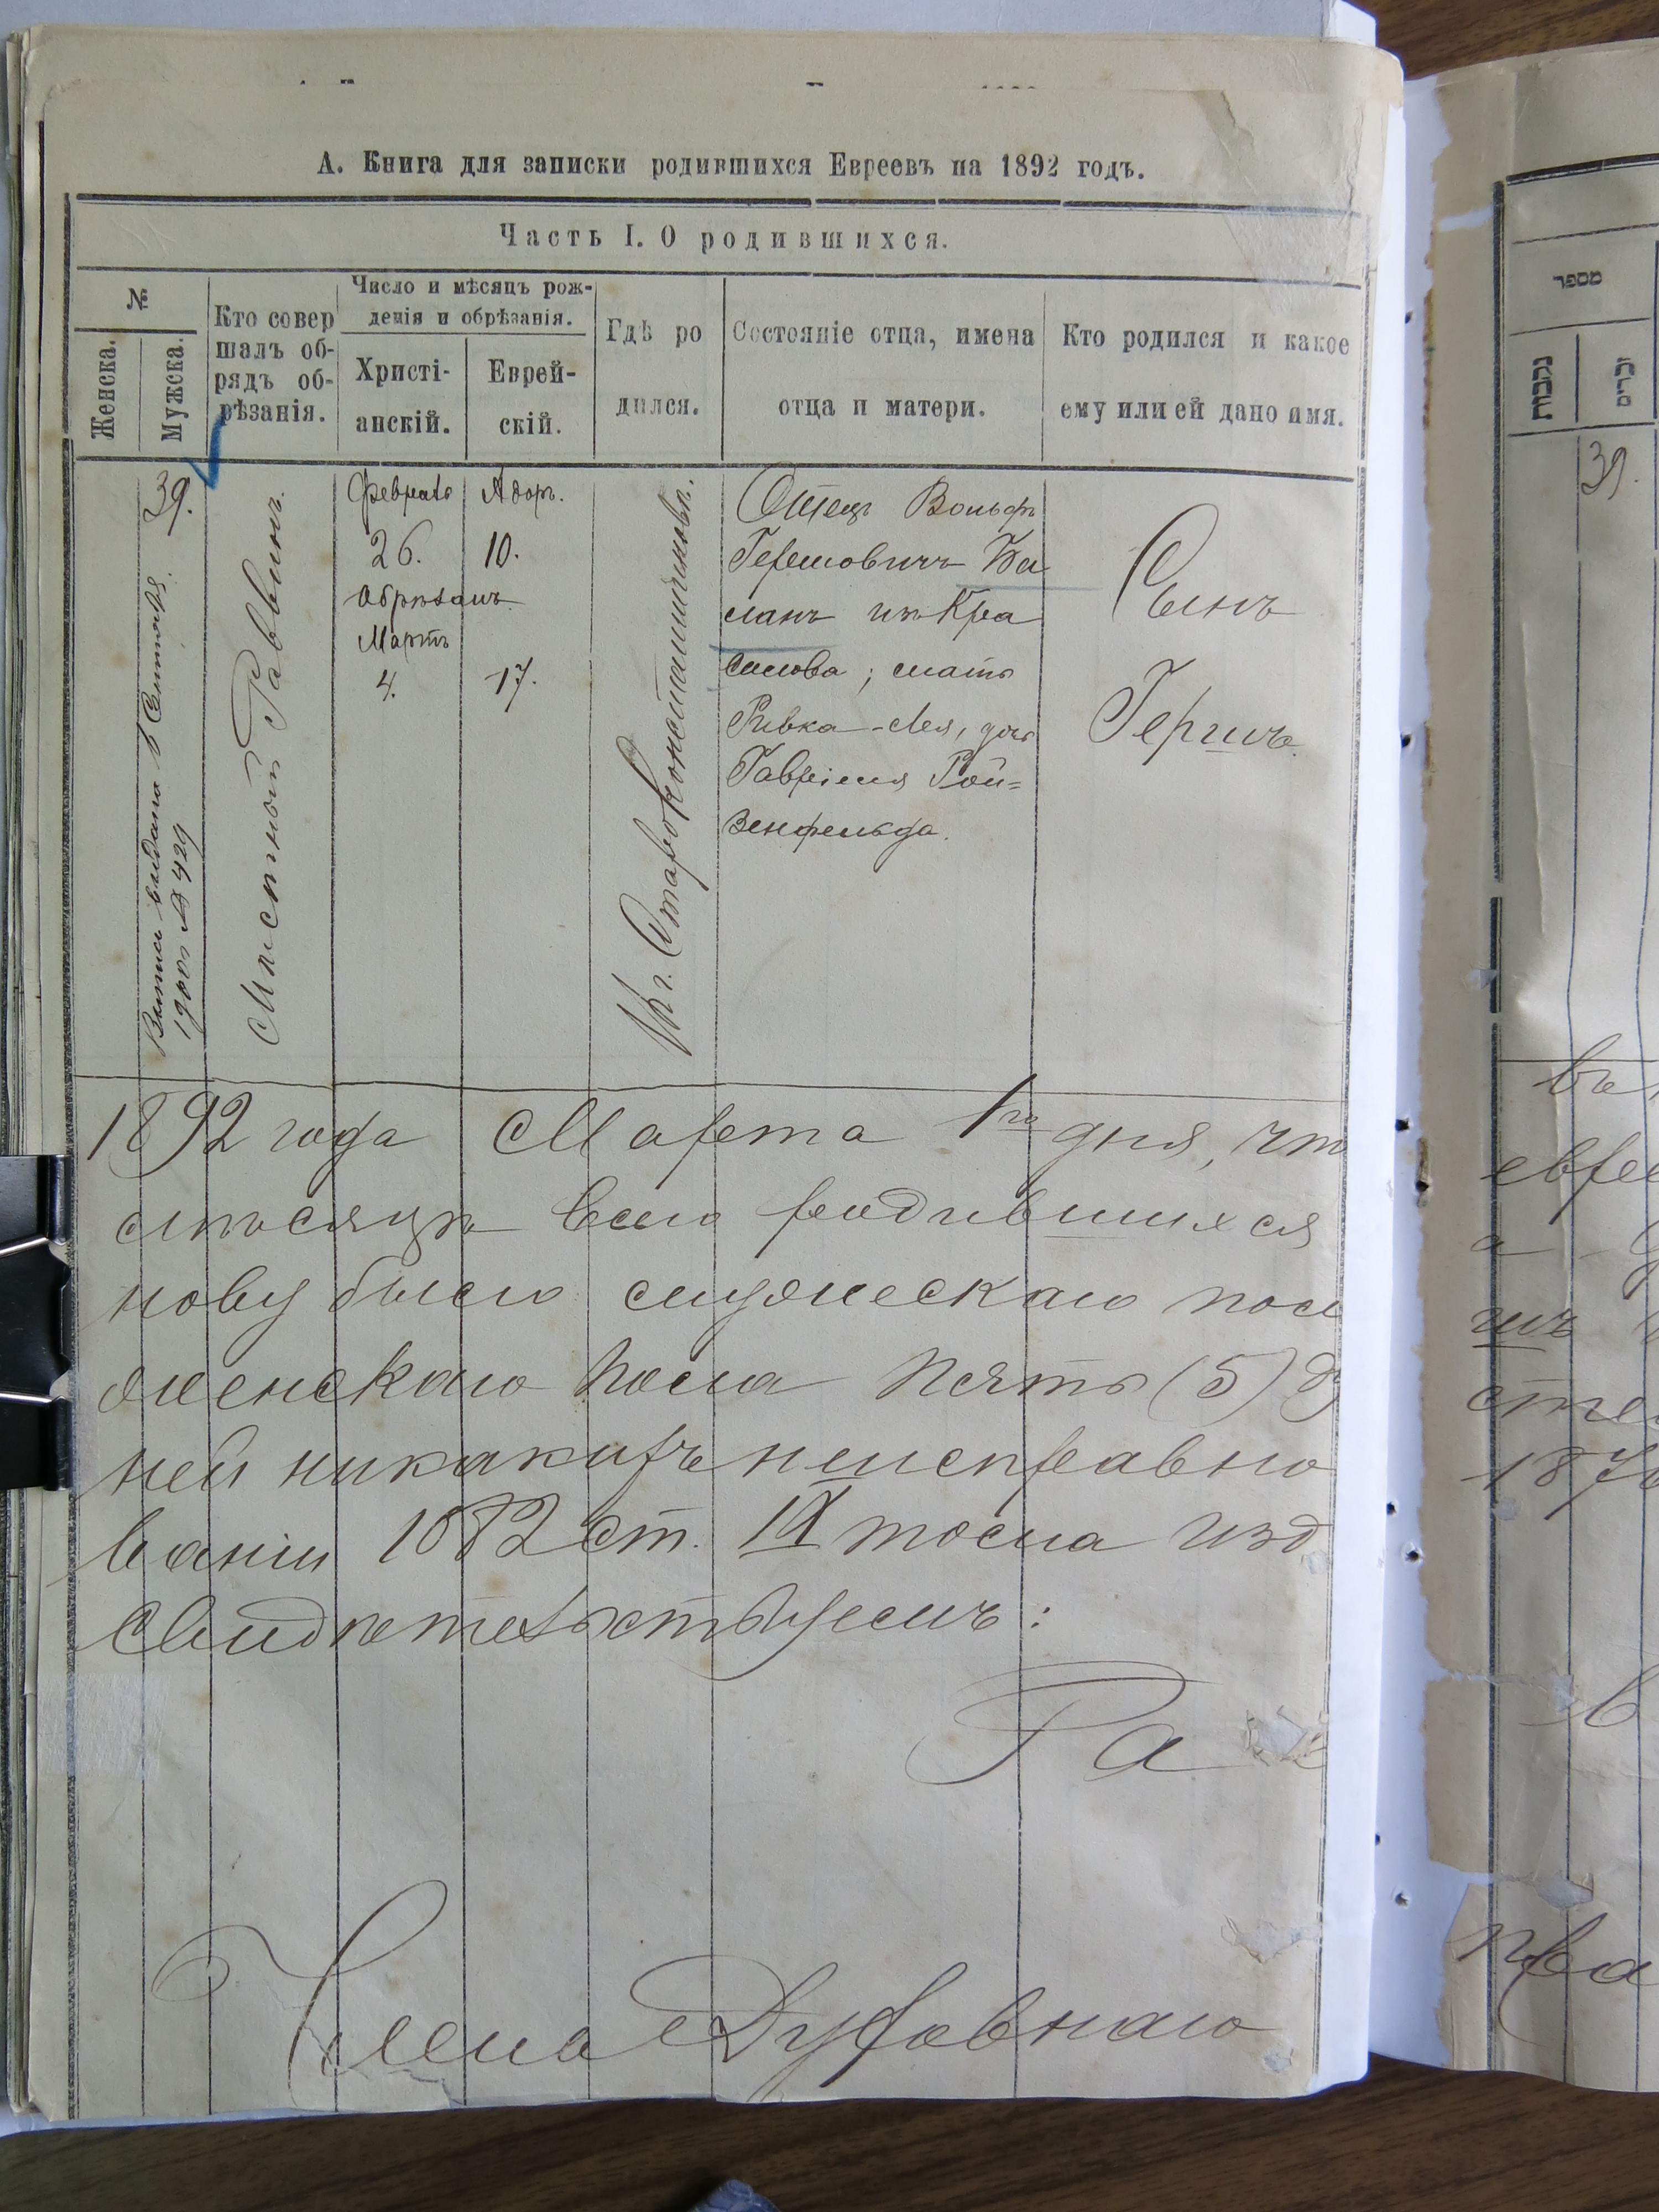 А. Книга для записки родившихся Евреевъ на 1892 годъ.
Часть I. О родившихся.
№
Женска.
Мужска.
Кто совер
шалъ об-
рядъ об-
рѣзанія.
Число и мѣсяцъ рож-
денія и обрѣзанія.
Христі-
анскій.
Еврей-
скій.
Гдѣ ро
дился.
Состояніе отца, имена
отца и матери.
Кто родился и какое
ему или ей дано имя.
39.
Выпись выдана 1 Сентября
1900 г. № 429
Мѣстный Раввинъ.
Февраль
26.
Обрѣзанъ
Мартъ
4.
Адоръ.
10.
17.
Въ г. Староконстантиновѣ.
Отецъ Вольфъ
Гершовичъ Ва
сманъ изъ Кра
силова; мать
Ривка-Лея, дочь
Гавріила Рой=
зенфельда.
Сынъ
Гершъ.
1892 года Марта 1го дня, чт
мѣсяцѣ всего родившихся
нову было мужескаго пол
женскаго пола Пять (5) д
ней никакихъ неисправно
ваніи 1082 ст. IX тома изд
свидѣтельствуемъ:
Ра
Члена Духовнаго
מספר
נקבות
זכרים
39.
въ
евреи
а
шъ
1870
в
пра